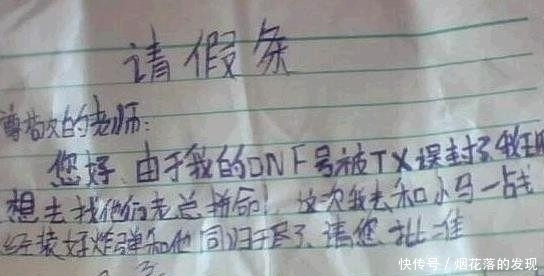 请假条
尊敬的老师:
您好 由于我的DNF号被TX误封了 我
想去找他们老总拼命! 这次我去和小马一战
经装好炸弹和他同归于尽了 请您批准
快传号 / 烟花落的发现